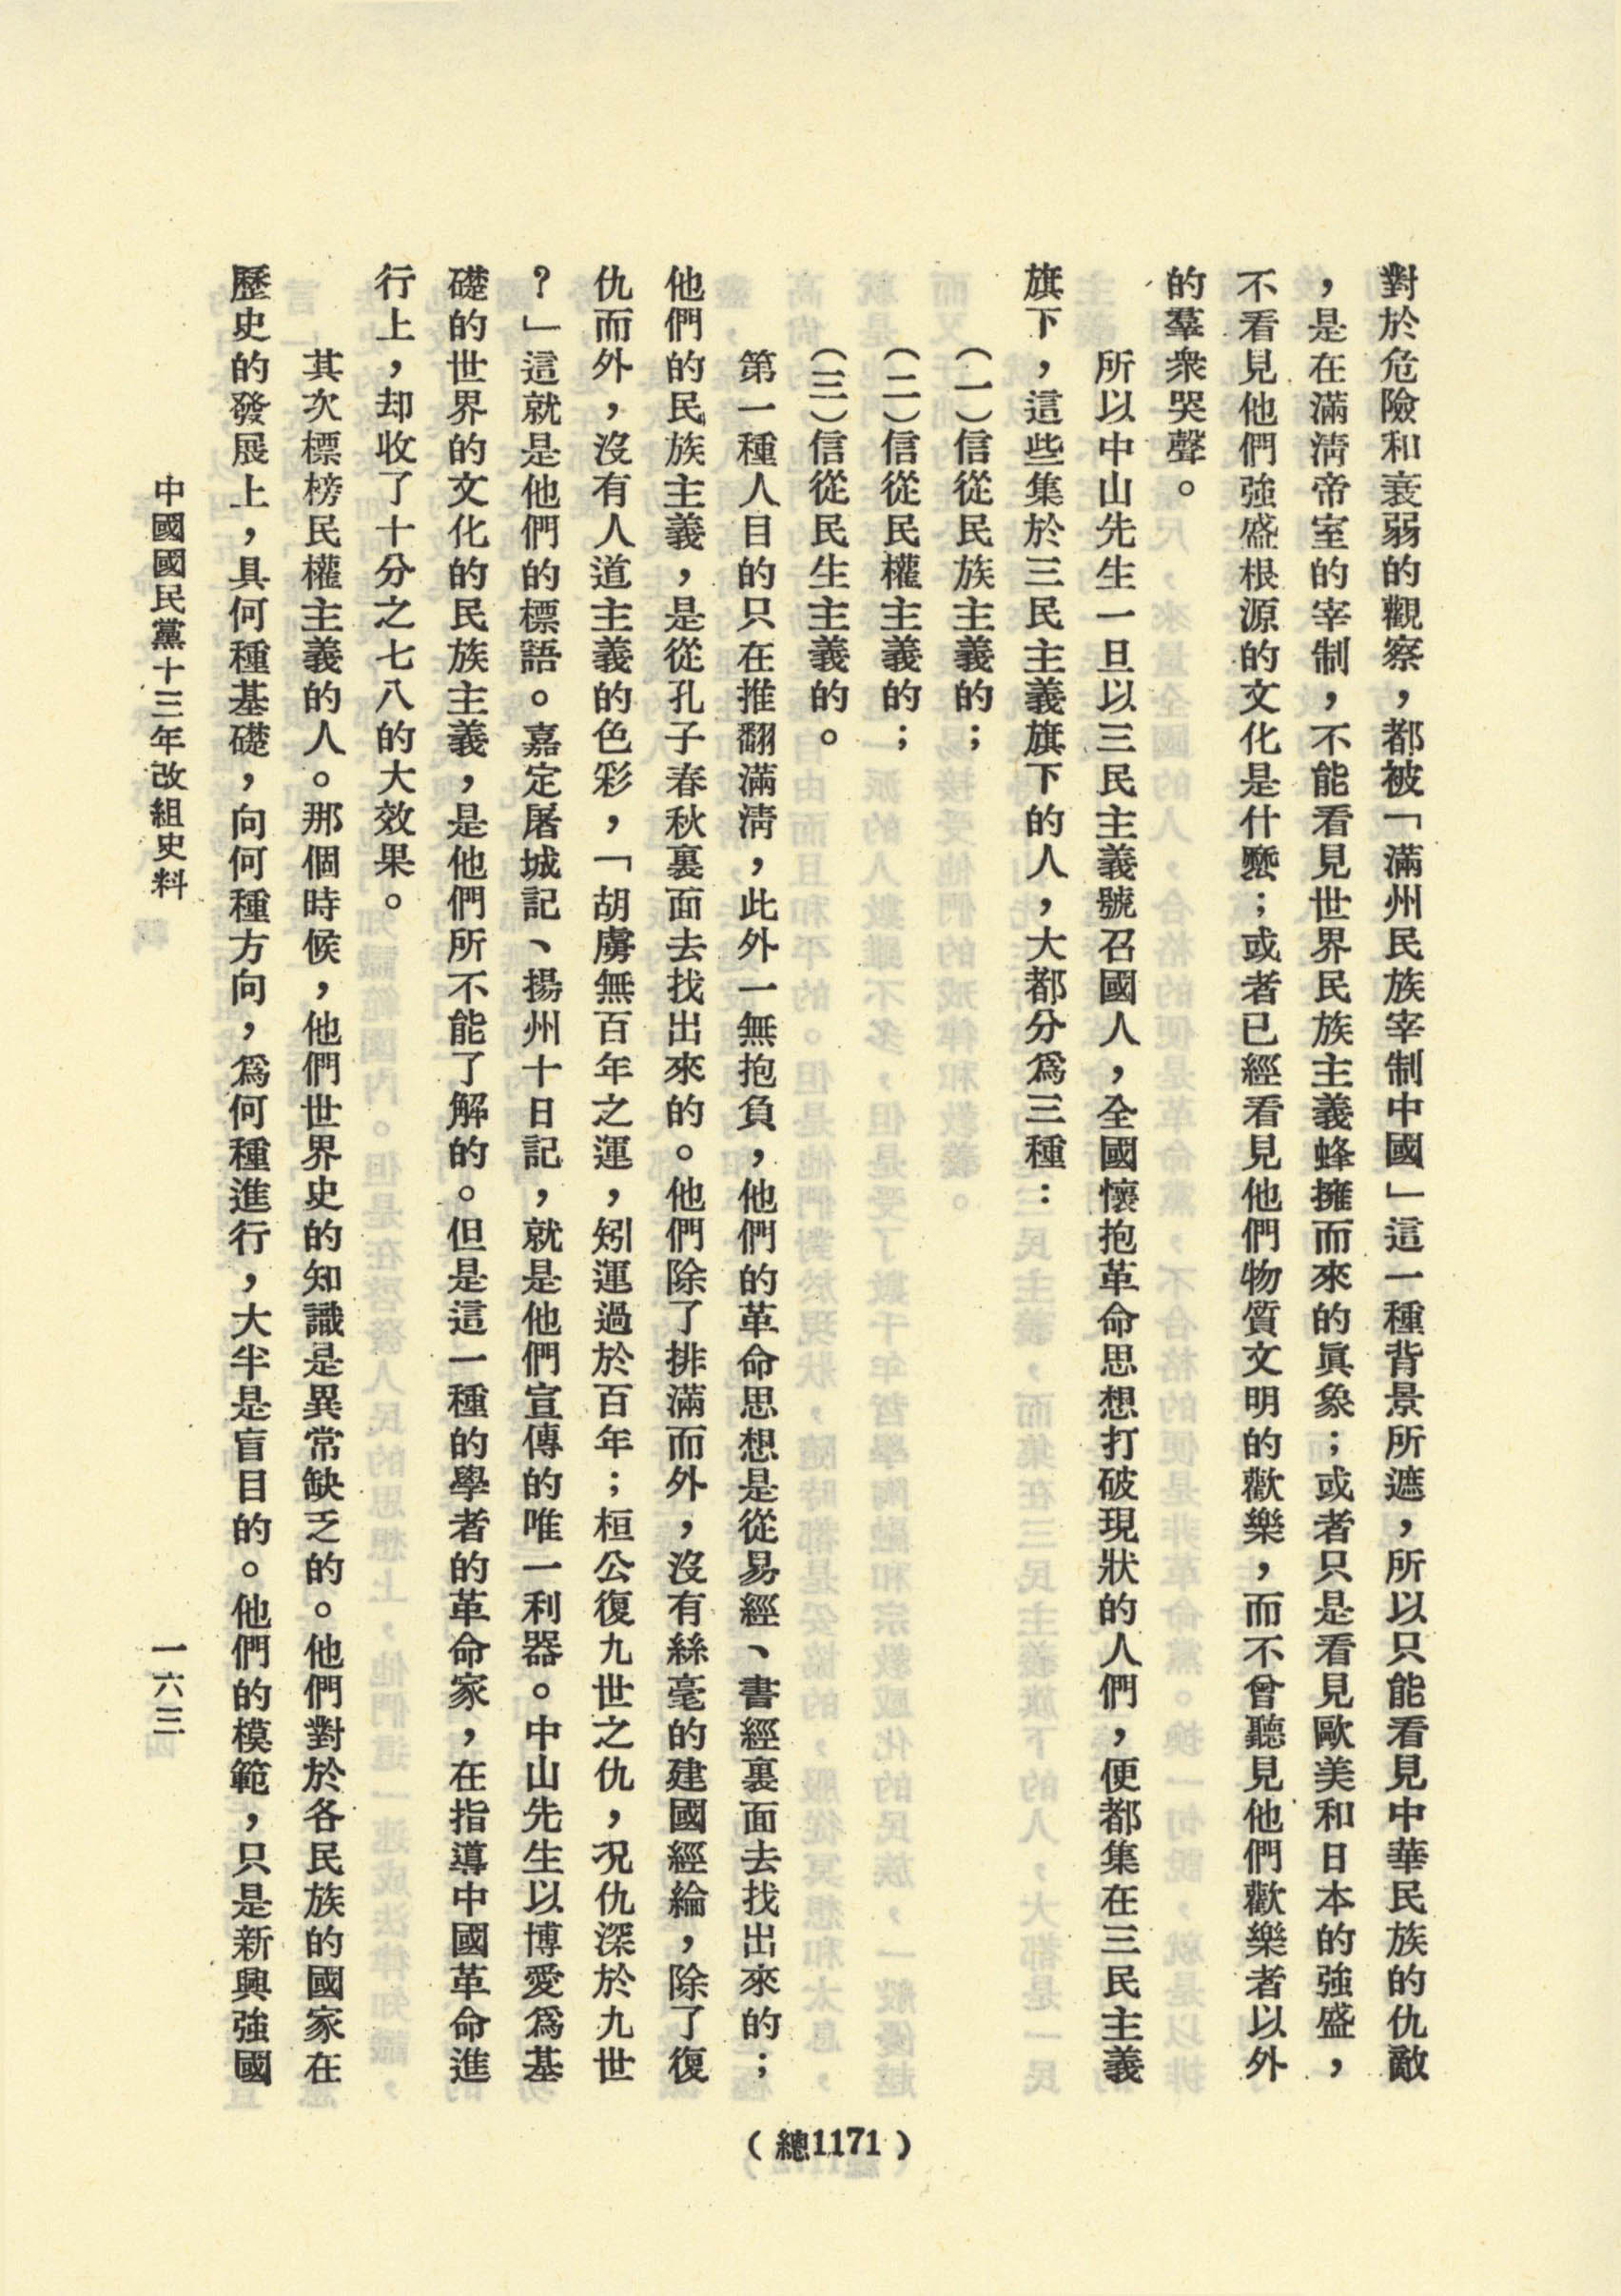 對於危險和衰弱的觀察，都被「滿州民族宰制中國」這一種背景所遮，所以只能看見中華民族的仇敵
，是在滿淸帝室的宰制，不能看見世界民族主義蜂擁而來的眞象；或者只是看見歐美和日本的強盛，
不看見他們強盛根源的文化是什麼；或者已經看見他們物質文明的歡樂，而不曾聽見他們歡樂者以外
的羣衆哭聲。
所以中山先生一旦以三民主義號召國人，全國懷抱革命思想打破現狀的人們，便都集在三民主義
旗下，這些集於三民主義旗下的人，大都分爲三種：
（一）信從民族主義的；
（二）信從民權主義的；
（三）信從民生主義的。
第一種人目的只在推翻滿淸，此外一無抱負，他們的革命思想是從易經、書經裏面去找出來的；
他們的民族主義，是從孔子春秋裏面去找出來的。他們除了排滿而外，沒有絲毫的建國經綸，除了復
仇而外，沒有人道主義的色彩，「胡虜無百年之運，矧運過於百年；桓公復九世之仇，況仇深於九世
？」這就是他們的標語。嘉定屠城記、揚州十日記，就是他們宣傳的唯一利器。中山先生以博愛爲基
礎的世界的文化的民族主義，是他們所不能了解的。但是這一種的學者的革命家，在指導中國革命進
行上，却收了十分之七八的大效果。
其次標榜民權主義的人。那個時候，他們世界史的知識是異常缺乏的。他們對於各民族的國家在
歷史的發展上，具何種基礎，向何種方向，爲何種進行，大半是盲目的。他們的模範，只是新興強國
中國國民黨十三年改組史料
一六三
（總1171）